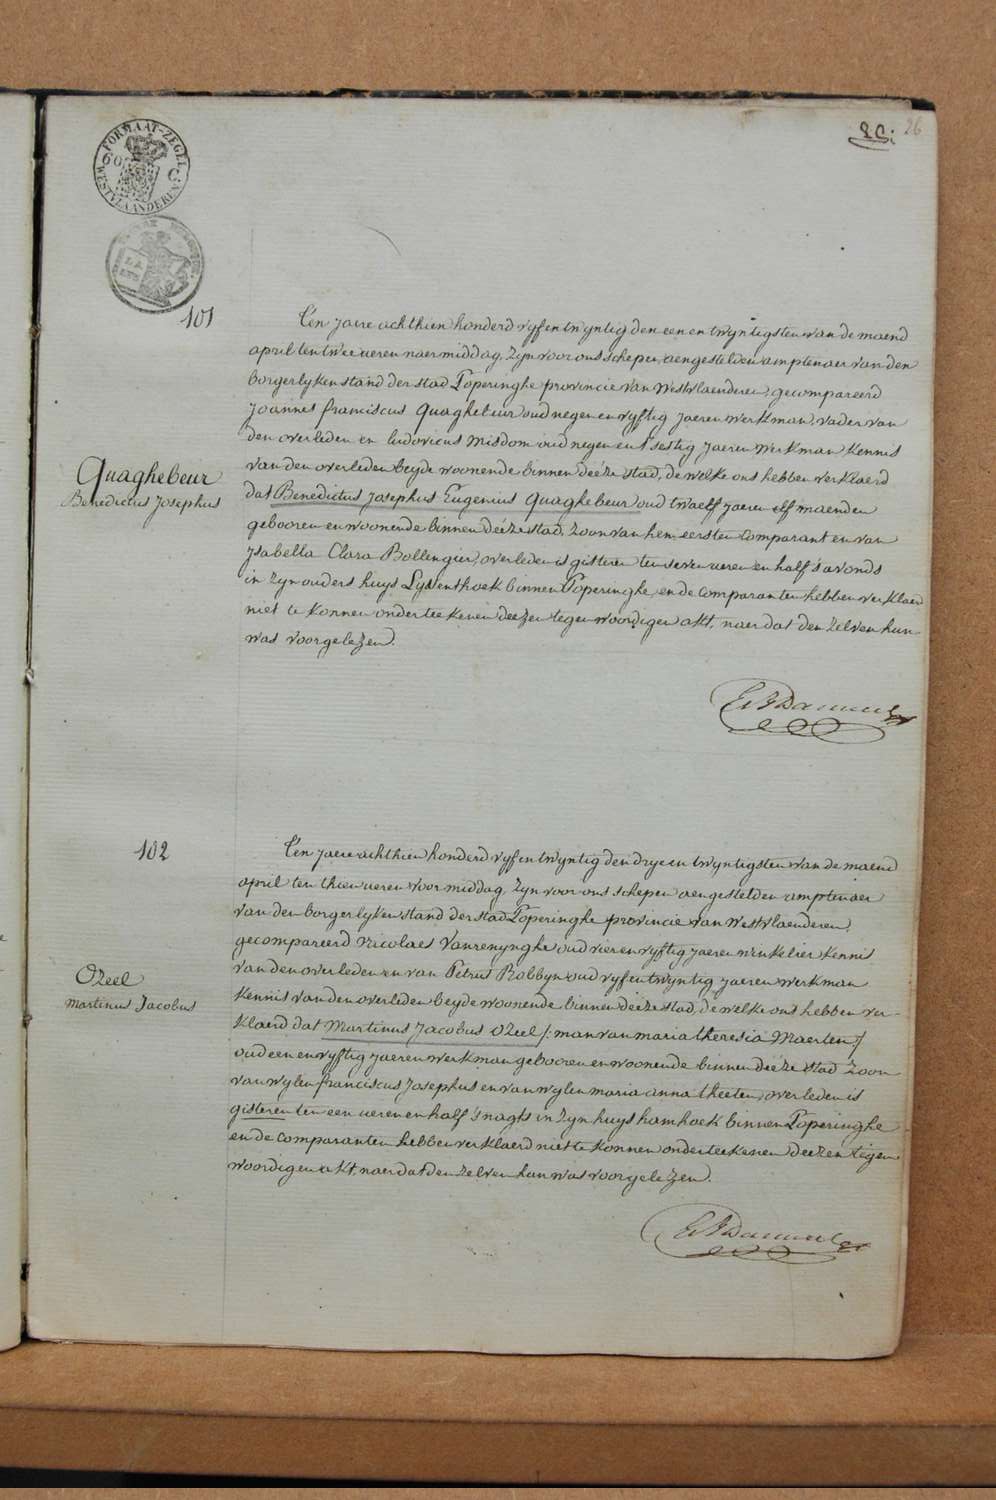 26
FORMAAT-ZEGEL
60 C:
WESTVLAANDEREN
101
Ten jaere achthien honderd vyfentwyntig den een en twyntigsten van de maend
april ten twee ueren naermiddag, zyn voor ons schepen, aengestelden amptenaer van den
borgerlyken stand der stad Poperinghe provincie van Westvlaenderen, gecompareerd
Joannes franciscus Quaghebeur oud negen en vyftig jaeren werkman, vader van
den overleden en Ludovicus Misdom oud negen en t'sestig jaeren werkman kennis
van den overleden beyde woonende binnen deéze stad, de welke ons hebben verklaerd
dat Benedictus Josephus Eugenius Quaghebeur oud twaelf jaeren elf maenden
gebooren en woonende binnen deéze stad, zoon van hem eersten comparant en van
Quaghebeur
Benedictus Josephus
Ysabella Clara Bollengier, overleden is gisteren ten seven ueren en half s'avonds
in zyn ouders huys Lyssenthoek binnen Poperinghe, en de comparanten hebben verklaerd
niet te konnen onderteekenen deezen tegenwoordigen akt, naer dat den zelven hun
was voorgelezen.
102
Ten jaere achthien honderd vyfentwyntig den drye en twyntigsten van de maend
april ten thien ueren voormiddag, zyn voor ons schepen aengestelden amptenaer
van den borgerlyken stand der stad Poperinghe provincie van Westvlaenderen,
gecompareerd Nicolaes Vanrenynghe oud vier en vyftig jaeren winkelier kennis
van den overleden en van Petrus Robbyn oud vyfentwyntig jaeren werkman
kennis van den overleden beyde woonende binnen deéze stad, de welke ons hebben ver-
klaerd dat Martinus Jacobus Ozeel /: man van maria theresia Maerten :/
oud een en vyftig jaeren werkman gebooren en woonende binnen deéze stad zoon
van wylen franciscus Josephus en van wylen maria anna theeten, overleden is
gisteren ten een ueren en half s'nagts in zyn huys hamhoek binnen Poperinghe
en de comparanten hebben verklaerd niet te konnen onderteekenen deezen tegen
woordigen akt, naer dat den zelven hun was voorgelezen.
Ozeel
Martinus Jacobus